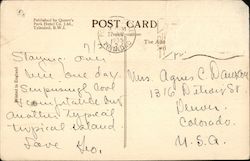 Published by Queen's
Park Hotel Co. Ltd.,
Trinidad, B.W.I.
POST CARD
The Ad
Printed in England
Staying over
here one day.
Surprisingly cool
comfortable but
another typical
typical island.
Love Geo.
Mrs. Agnes C.
1316
Denver.
Colorado.
U.S.A.